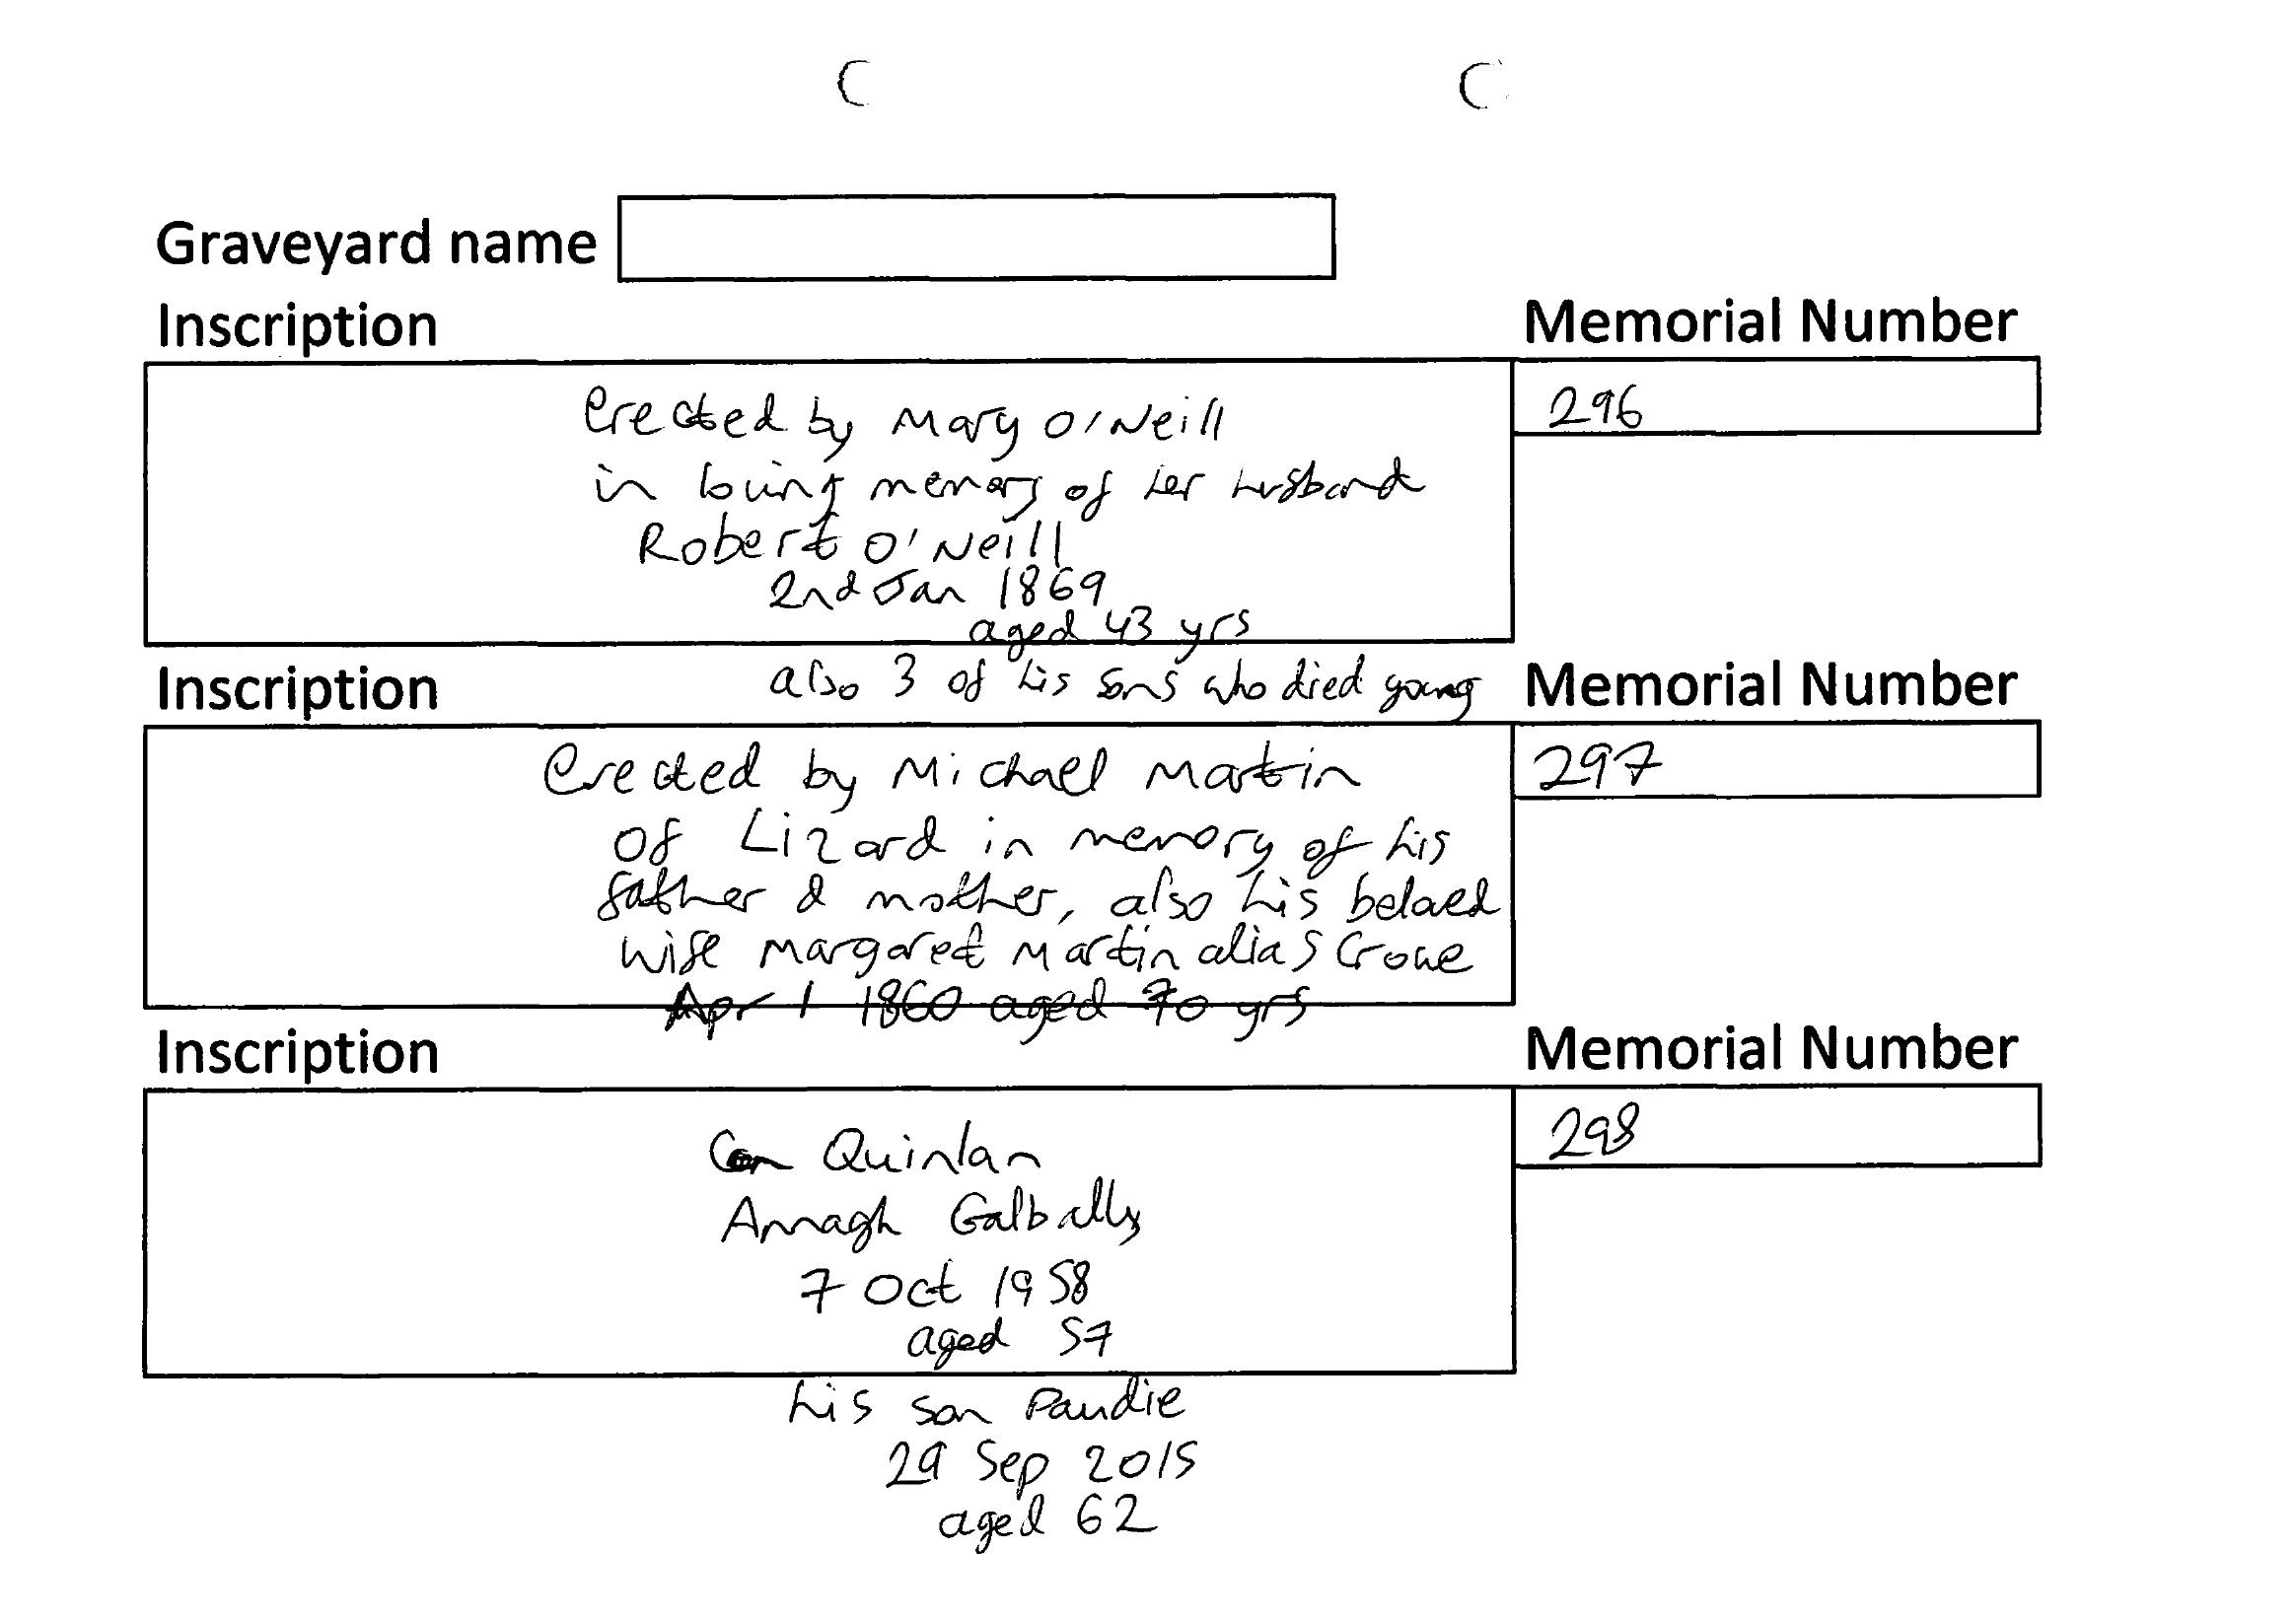 Graveyard name
Inscription
Memorial Number
Erected by Mary O'Neill
296
in loving memory of her husband
Robert O'Neill
2nd Jan 1869
aged 43 yrs
also 3 of his sons who died young
Inscription
Memorial Number
Erected by Michael Martin
297
of Lizard in memory of his
father & mother, also his beloved
wife Margaret Martin alias Crowe
Apr 1 1860 aged 70 yrs
Inscription
Memorial Number
298
Con Quinlan
Annagh Galbally
7 Oct 1958
aged 57
his son Paudie
29 Sep 2015
aged 62